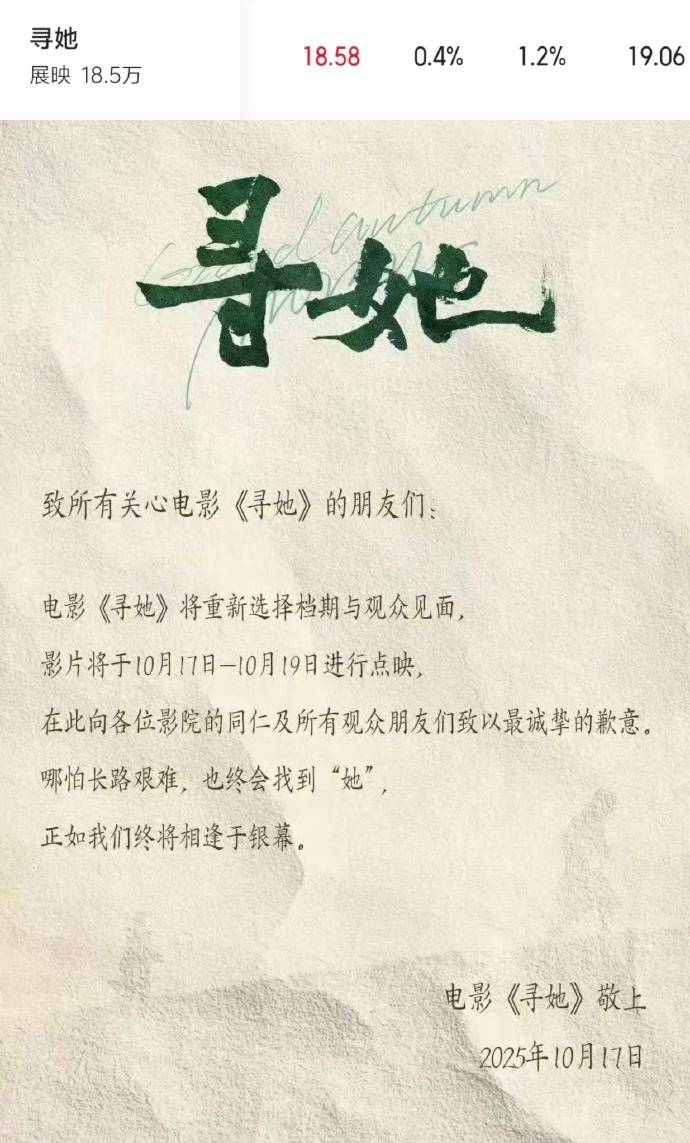 寻她
展映 18.5万
18.58 0.4% 1.2% 19.06
寻她
致所有关心电影《寻她》的朋友们：
电影《寻她》将重新选择档期与观众见面，
影片将于10月17日—10月19日进行点映，
在此向各位影院的同仁及所有观众朋友们致以最诚挚的歉意。
哪怕长路艰难，也终会找到“她”，
正如我们终将相逢于银幕。
电影《寻她》敬上
2025年10月17日